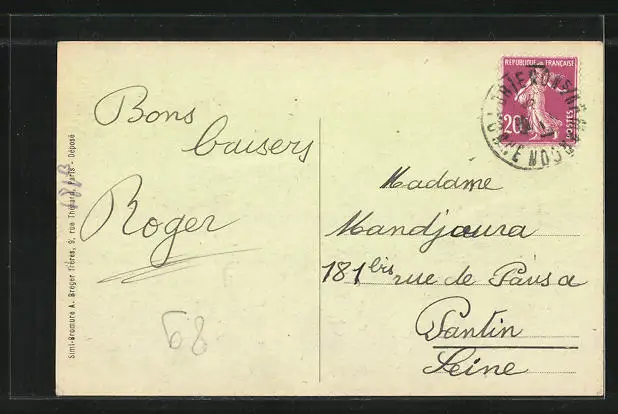 Bons
baisers
Roger
68
Simi-Bromure A. Breger frères, 9, rue Thénard, Paris - Déposé
REPUBLIQUE FRANÇAISE
20
POSTES
Madame
Mandjoura
181 bis rue de Paris a
Pantin
Seine